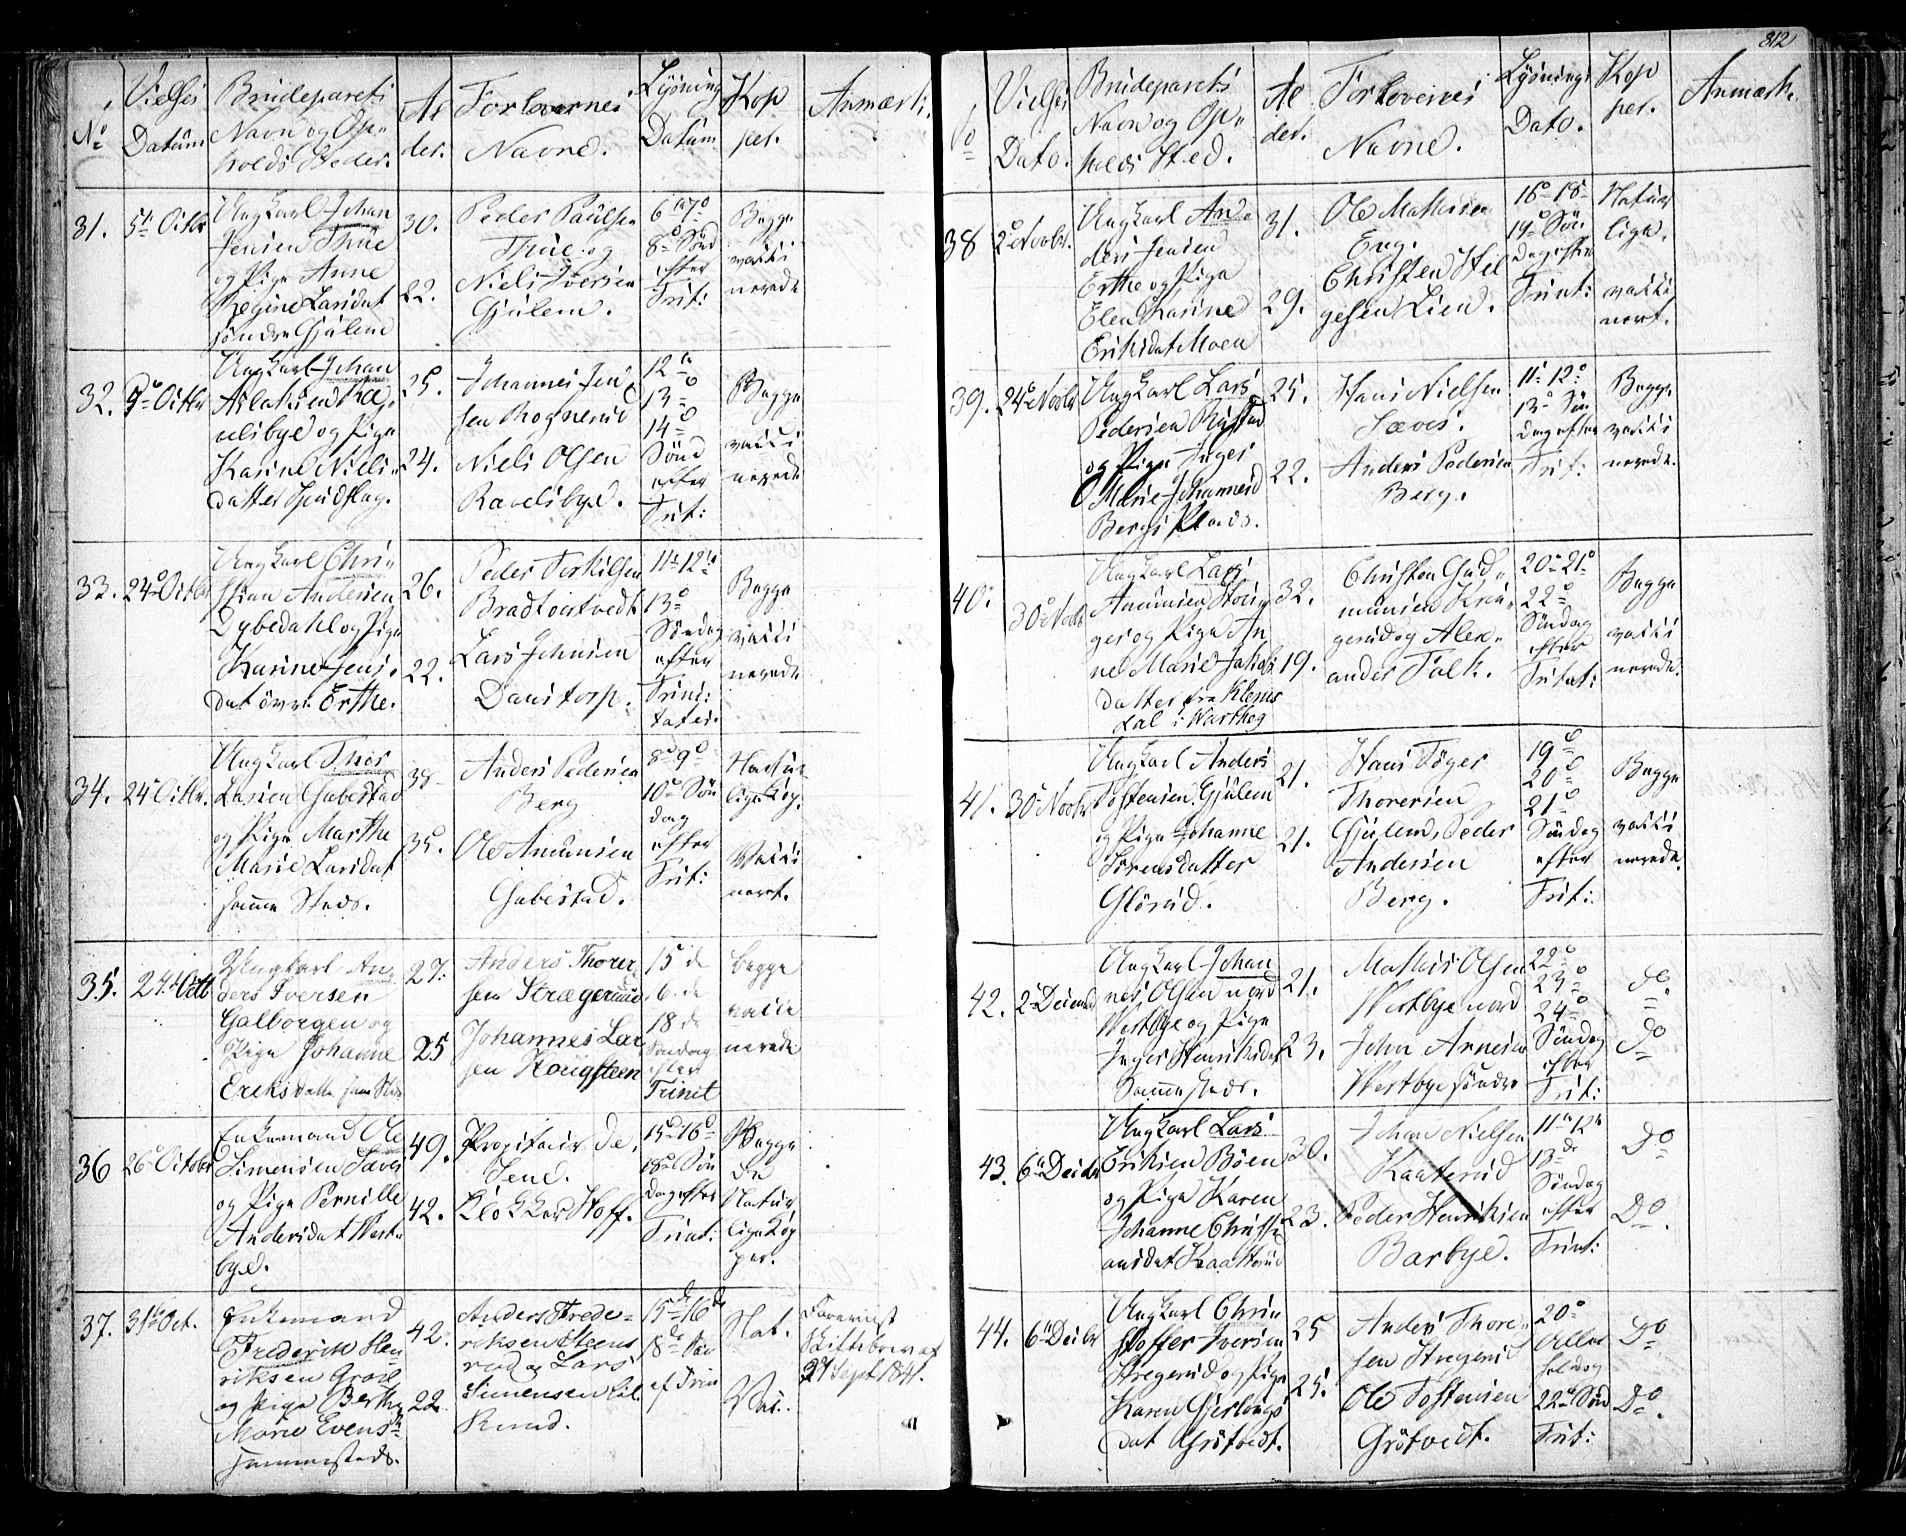 812
No
Vielses
Datum
Brudeparets
Navn og Op„
holds Steder.
Al
der.
Forlovernes
Navne.
Lysning
Datum
Kop
per.
Anmærk:
31.
5te Octbr
Ungkarl Johan
Jensen Thüe
og Pige Anne
Regine Larsdat
søndre Gjülem
30.
22.
Peder Paulsen
Thüe og
Niels Iversen
Gjülem.
6te 7de
8de Sønd
efter
Trit:
Begge
vacci
nerede
32.
Octbr
Ungkarl Johan
og Pige
Karine Niels„
datter
25.
24.
Johannes Jen
sen Rognerud
Niels Olsen
12te
13de
14de
Sønd
efter
Trit:
Begge
vacci
nerede
33.
24de Octbr
Ungkarl Chri„
stian Andersen
Dybedahl og Pige
Karine Jens„
dat övre Erthe.
26.
22.
Peder Torkilsen
Bradtortvedt
Lars Johnsen
Danstorp.
11te 12te
13de
Søndag
efter
Trini:
tatis.
Begge
vacci
nerede
34.
24de Octbr.
Ungkarl Thor
Larsen Gabestad
og Pige Marthe
Marie Larsdat
samme Steds.
38
35.
Anders Pedersen
Berg
Ole Amundsen
Gabestad.
8de 9de
10de Søn
dag
efter
Trit:
Natür
lige Kop.
Vacci
neret.
35.
24de Octb
Ungkarl An„
ders Iversen
Galborgen og
Pige Johanne
Eriksdatte sam Steds
27.
25
Anders Thorer
sen Strægerud
Johannes Lar
sen Hougsteen
15 de
16 de
18 de
Søndag
efter
Trinit
begge
vacci
nerede
36
26de Octobr
Enkemand Ole
Simensen Sæves
og Pige Pernille
Andersdat Westu
bye.
49.
42.
Propitair De„
Sene.
Klokker Hoff.
15de 16de
18de Søn
dag efter
Trint:
Begge
de
Natur
lige Kop
per.
37.
31te Oct.
Enkemand
Frederik Hen
riksen
og Pige Berthe
Marie Evensd
sammesteds.
42.
22
Anders Frede„
riksen Steens
rud og Lars
Simensen Lil
Rud.
15de 16de
18de Søn
ef Trin
Nat.
Vac.
Foreviist
Skiftebrev af
27 Sept 1841.
No
Vielses
Dato.
Brudeparets
Navn og Op„
holds Sted.
Al
der.
Forlovernes
Navne.
Lysnings
Dato.
Kop
per.
Anmærk.
38
2de Novbr.
Ungkarl An„
ders Jensen
Erthe og Pige
Elen Karine
Eriksdat Moen
31.
29.
Ole Mathisen
Eng.
Christen Hel
gesen Lien.
16de 18de
19de Søn
dag efter
Trint:
Natur
lige.
vacci
neret.
39.
24de Novbr
Ungkarl Lars
Pedersen Rustad
og Pige Inger
Marie Johannesd
Bergs Plads.
25.
22.
Hans Nielsen
Sæves.
Anders Pedersen
Berg.
11te 12de
13de Søn
dag efter
Trit:
Begge
vacci
nerede.
40.
30te Novbr
Ungkarl Lars
Amunsen
og Pige An
ne Marie Jakobs
datter fra Klemis
dal i Warteig
32.
19.
Christen Gud„
munsen
gerud og Alex„
ander Falk.
20de 21de
22de
Søndag
efter
Tritat:
Begge
vacci
nerede.
41.
30te Novbr
Ungkarl Anders
Tostensen Gjülem
og Pige Johanne
Sørensdatter
Glörud.
21.
21.
Hans Föger
Thoresen
Gjülem, Peder
Andersen
Berg.
19de
20de
21de
Søndag
efter
Trit:
Begge
vacci
nerede.
42.
2de Decembr
Ungkarl Johan
nes Olsen nord
Westbye og Pige
Inger Henriksdat
Sammesteds.
21.
23.
Mathis Olsen
Westbye nord
John Arnesen
Westbye søndre
22de
23de
24de
Søndag
efter
Trit:
Do
Do
43.
6te Decbr
Ungkarl Lars
Eriksen Böen
og Pige Karen
Johanne Christi
ansdat Kaatterud
30.
23.
Johan Nielsen
Kaaterud
Peder Henriksen
Barbye.
11te 12te
13de
Søndag
efter
Trint:
Do
Do.
44.
6te Decbr
Ungkarl Chri„
stoffer Iversen
Stregerud og Pige
Karen Gjerlougs
dat Grötvedt.
25
25.
Anders Thore„
sen Stregerud
Ole Tostensen
Grötvedt.
20de
Allle
heldag
22de Sønd
Trit:
Do
Do.